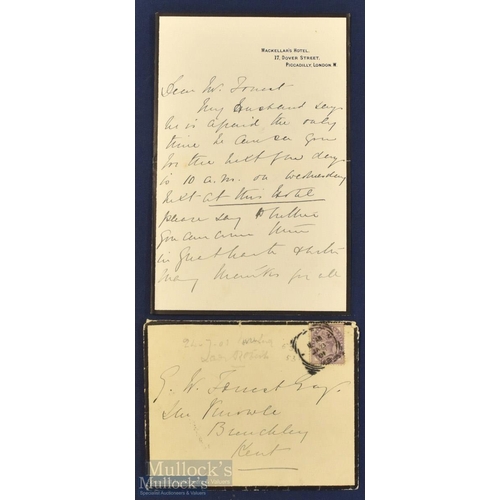 MACKELLAR'S HOTEL,
17, DOVER STREET,
PICCADILLY, LONDON. W.
Dear Mr. Forrest
My Husband says
he is afraid the only
time he can see you
for the next few days
is 10 a.m. on Wednesday
next at this Hotel
please say whether
you can come then
in great haste & with
many thanks for all
G. W. Forrest Esq.
The Knowle
Brenchley
Kent
Mullock's
Specialist Auctioneers & Valuers
Mullock's
Specialist Auctioneers & Valuers